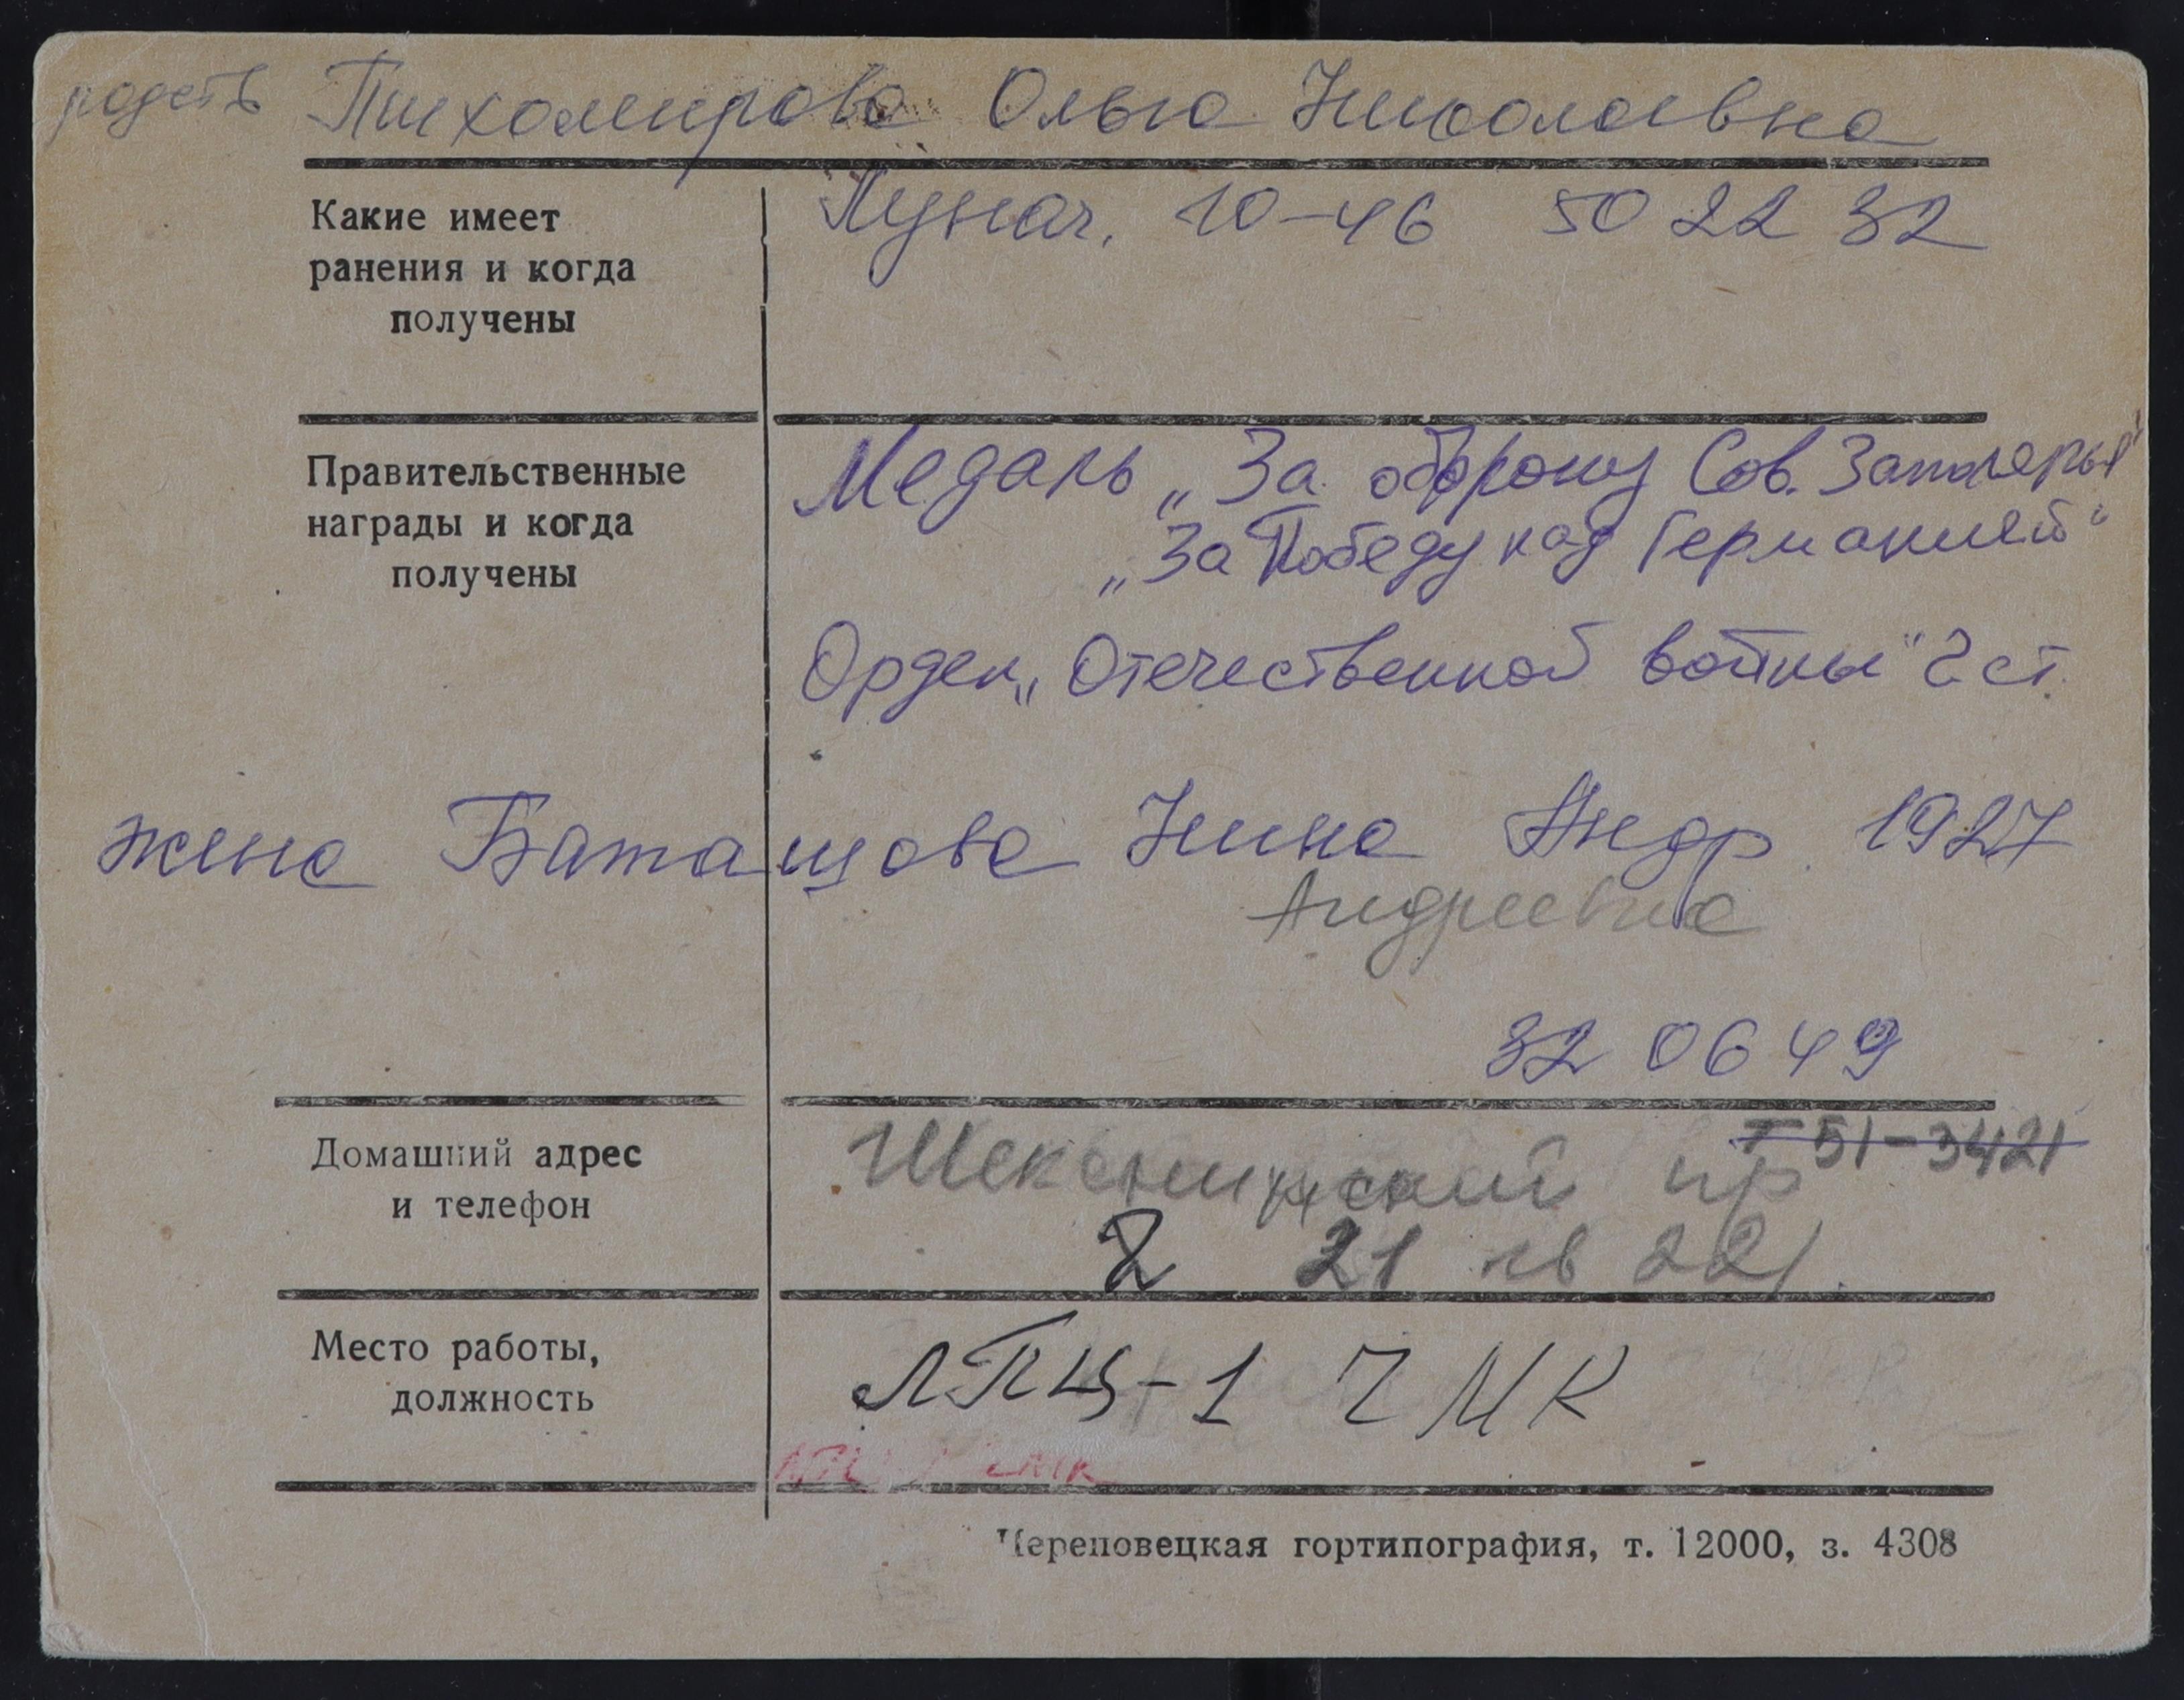 родств Тихомирова Ольга Николаевна
Какие имеет
ранения и когда
получены
Лунач. 10-46 50 22 32
Правительственные
награды и когда
получены
Медаль „За оборону Сов. Заполярья"
„За Победу над Германией"
Орден „Отечественной войны" 2 ст.
жена Баташова Нина Андр. 1927
Андреевна
32 06 49
Домашний адрес
и телефон
т 51-3421
Шекснинский пр
2 21 кв 221.
Место работы,
должность
ЛПЦ-1 ЧМК
Череповецкая гортипография, т. 12000, з. 4308